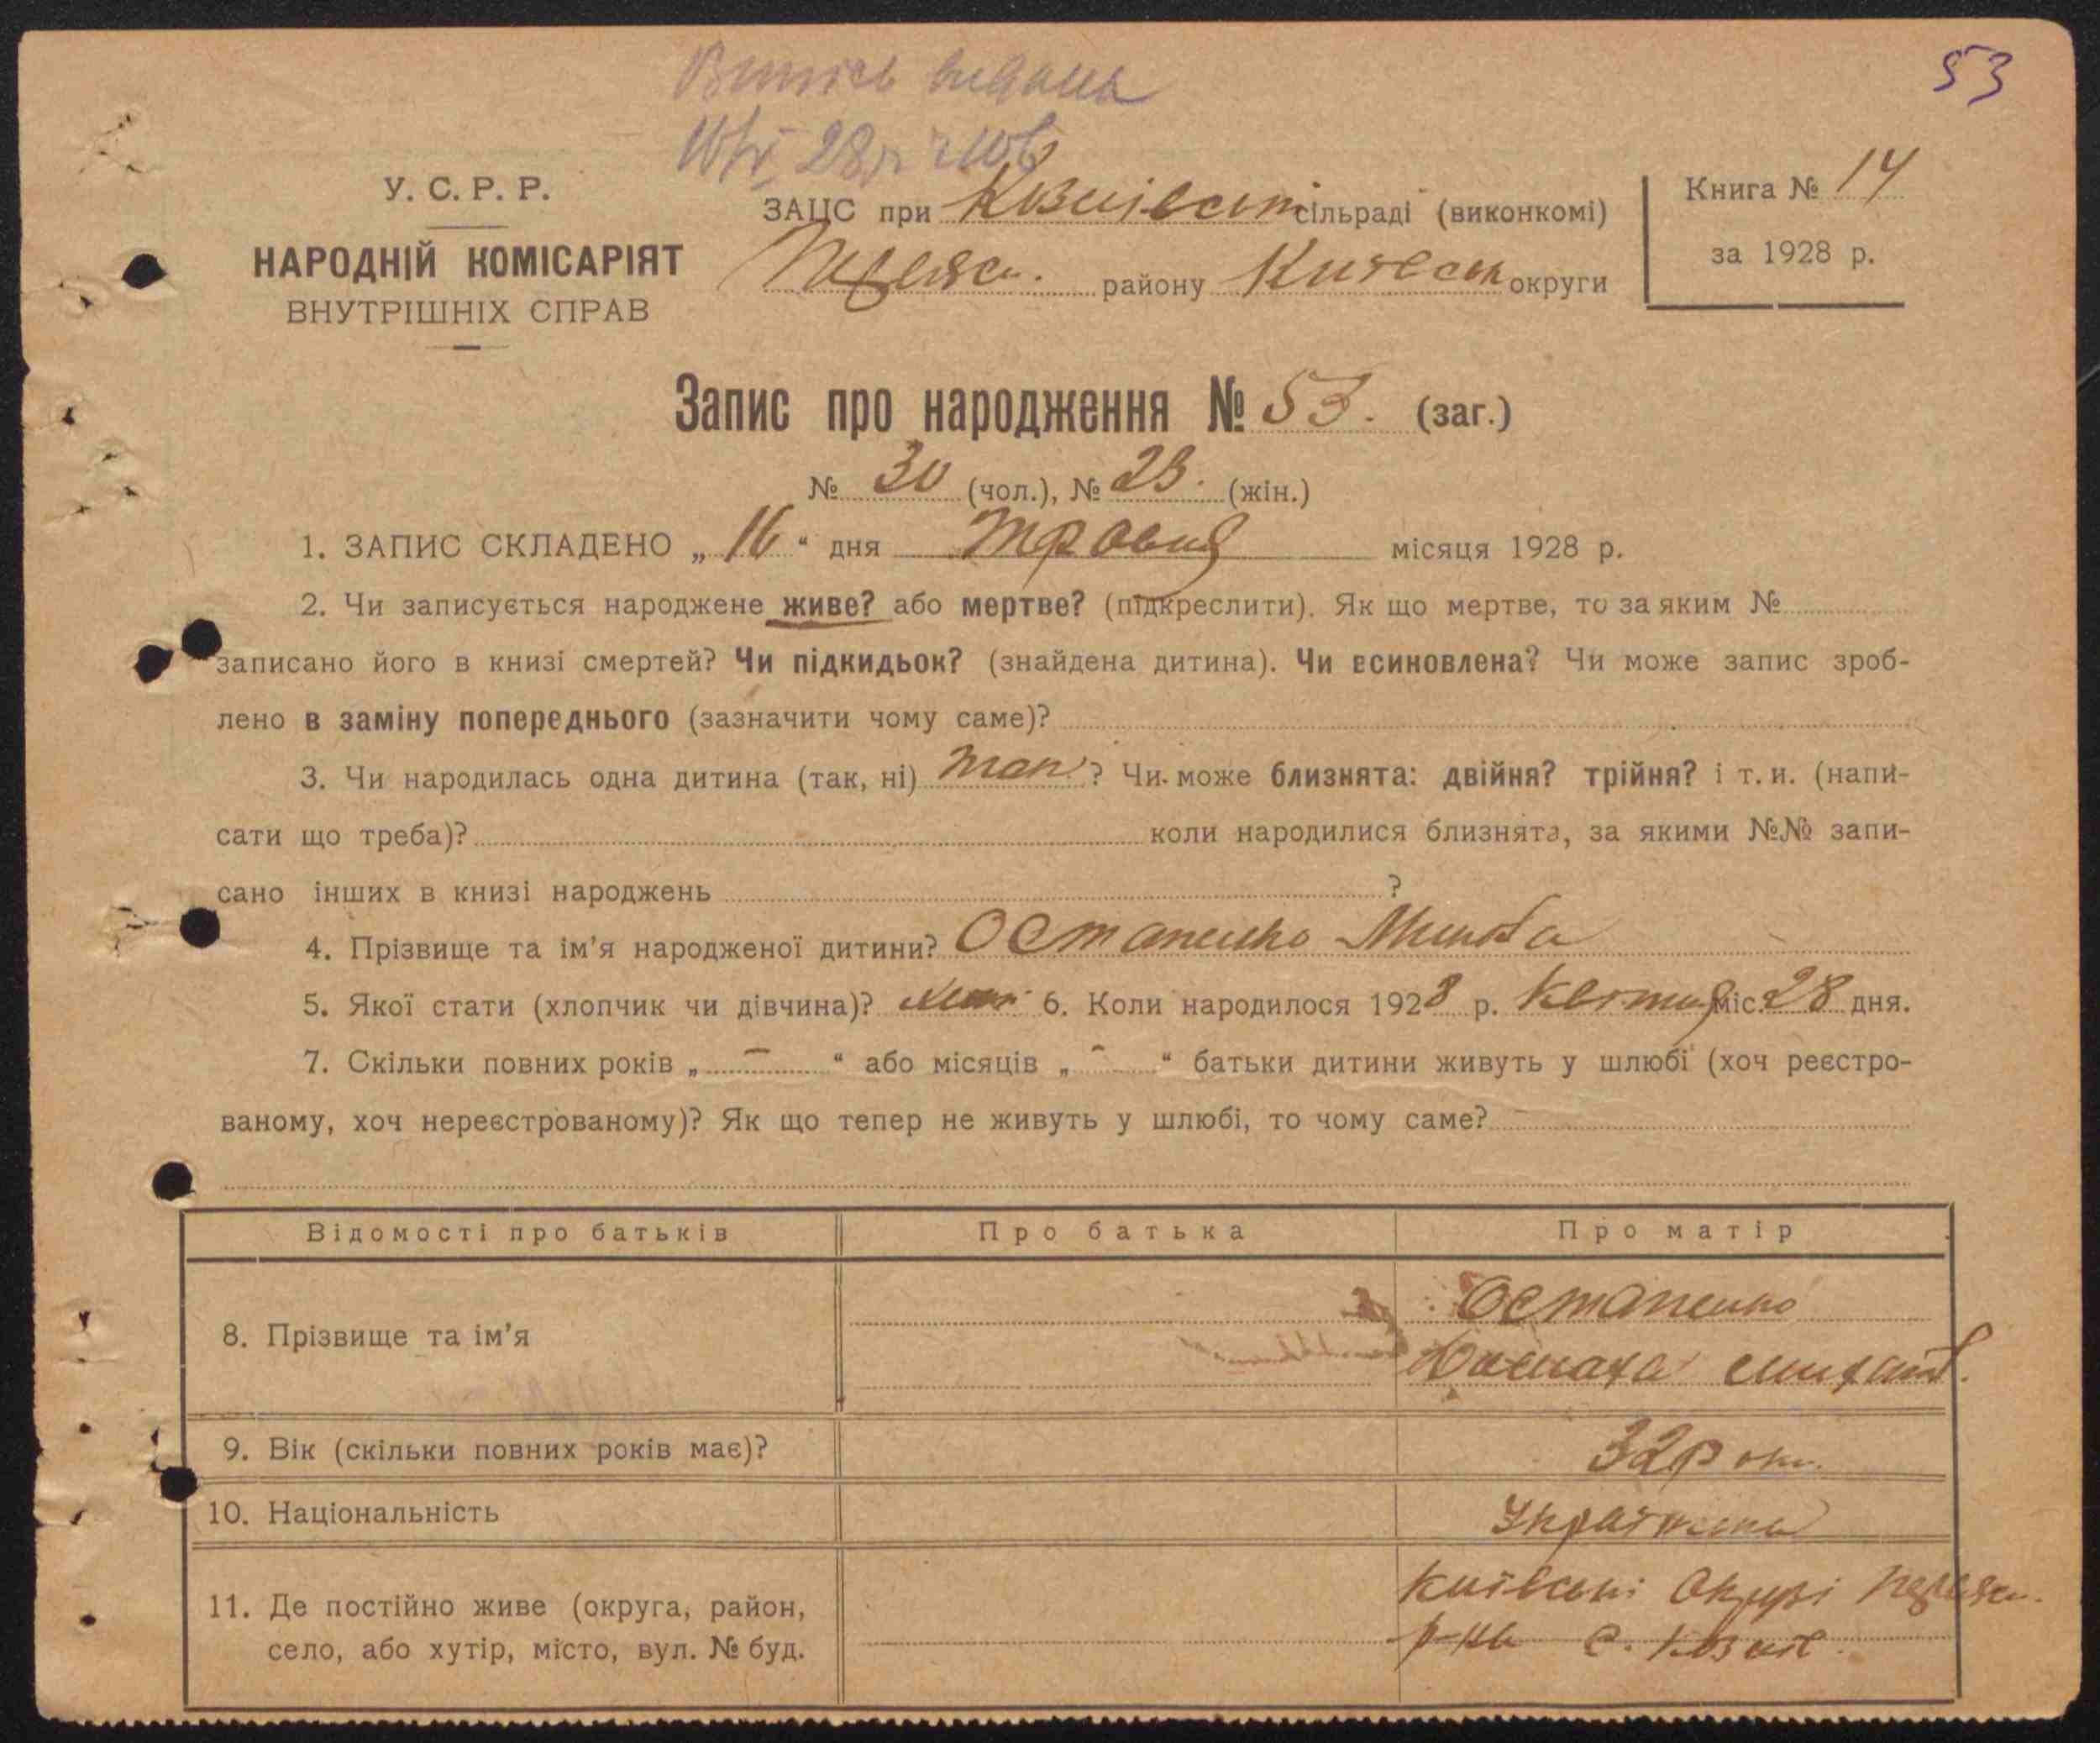 53
Випись видана
У. С. Р. Р.
НАРОДНІЙ КОМІСАРІЯТ
ВНУТРІШНІХ СПРАВ
ЗАЦС при сільраді (виконкомі)
Переяс. району Київськ округи
Книга № 14
за 1928 р.
Запис про народження № 53. (заг.)
№ 30 (чол.), № 23. (жін.)
1. ЗАПИС СКЛАДЕНО „ 16 “ дня травня місяця 1928 р.
2. Чи записується народжене живе? або мертве? (підкреслити). Як що мертве, то за яким №
записано його в книзі смертей? Чи підкидьок? (знайдена дитина). Чи всиновлена? Чи може запис зроб-
лено в заміну попереднього (зазначити чому саме)?
3. Чи народилась одна дитина (так, ні) так ? Чи може близнята: двійня? трійня? і т. и. (напи-
сати що треба)? коли народилися близнята, за якими №№ запи-
сано інших в книзі народжень ?
4. Прізвище та ім’я народженої дитини? Остапенко Микола
5. Якої стати (хлопчик чи дівчина)? 6. Коли народилося 1928 р. Квітня міс. 28 дня.
7. Скільки повних років „ — “ або місяців „ - “ батьки дитини живуть у шлюбі (хоч реєстро-
ваному, хоч нереєстрованому)? Як що тепер не живуть у шлюбі, то чому саме? —
Відомості про батьків Про батька Про матір
8. Прізвище та ім’я Остапенко
9. Вік (скільки повних років має)? 32 роки.
10. Національність Українка
11. Де постійно живе (округа, район, Київські Окрузі Переяс.
село, або хутір, місто, вул. № буд. р-на с.